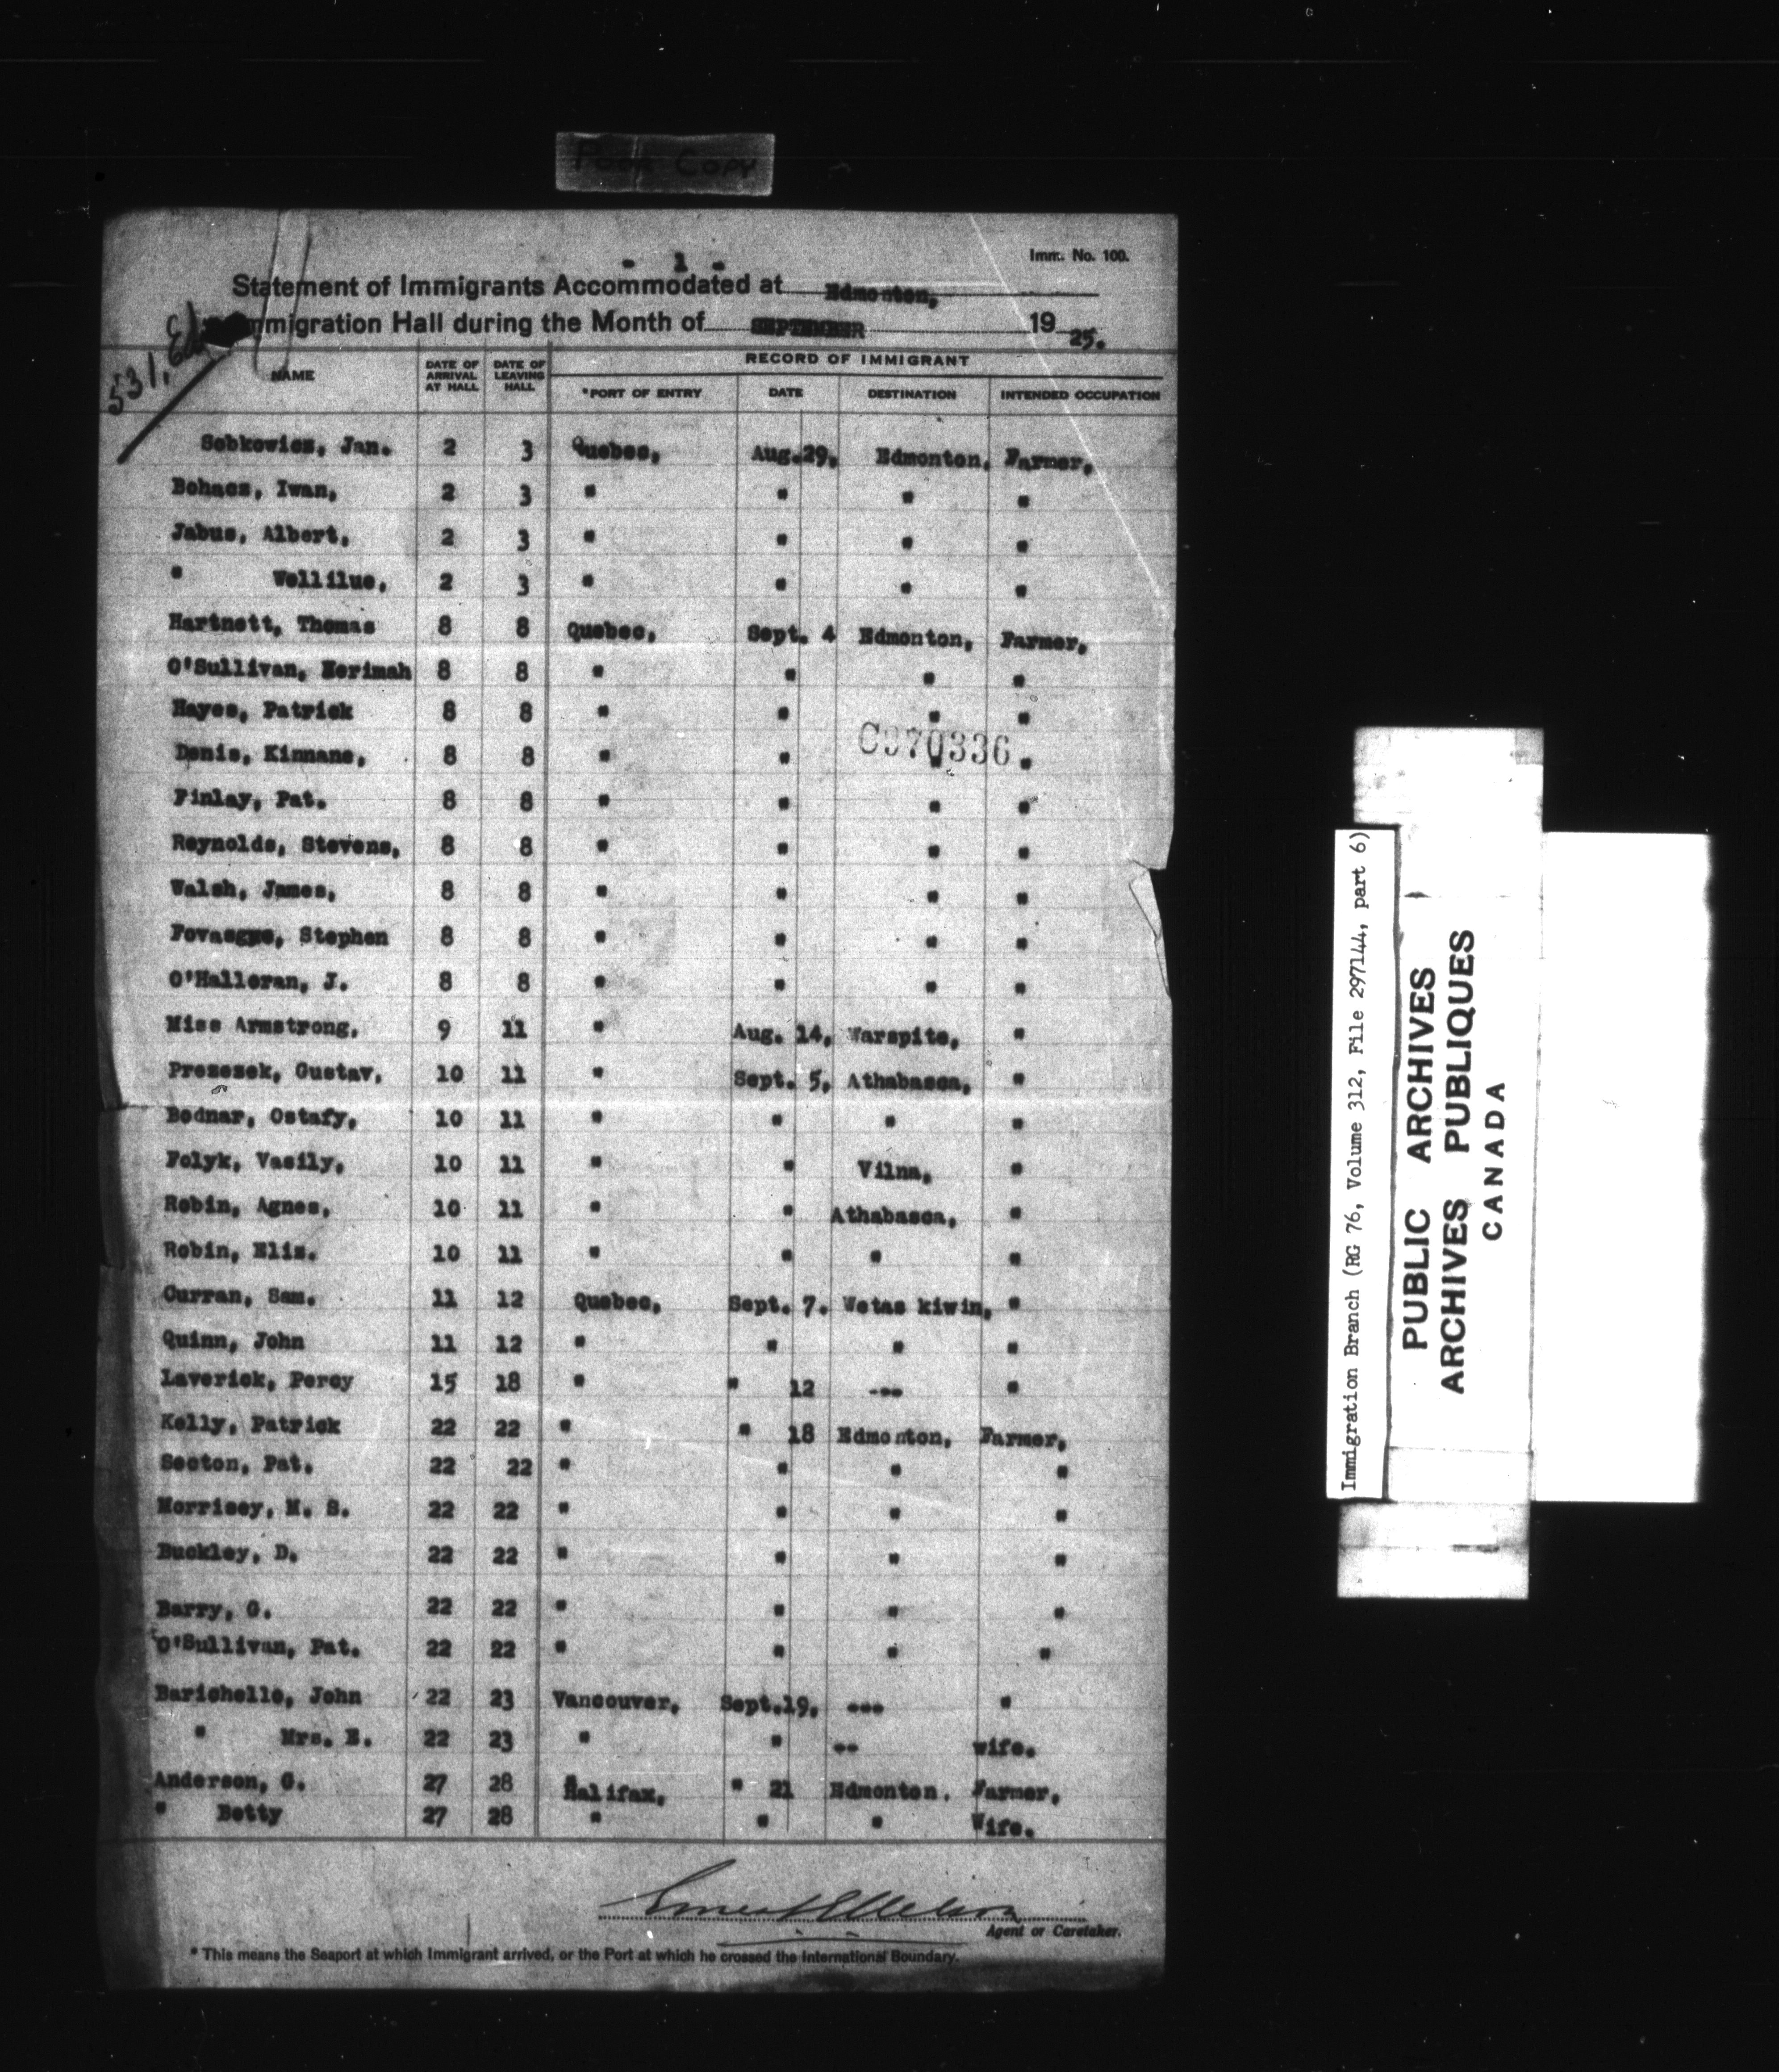 Poor Copy
Imm. No. 100.
- 1 -
Statement of Immigrants Accommodated at Edmonton,
Immigration Hall during the Month of SEPTEMBER 19 25.
531,
NAME DATE OF ARRIVAL AT HALL DATE OF LEAVING HALL RECORD OF IMMIGRANT
*PORT OF ENTRY DATE DESTINATION INTENDED OCCUPATION
Sobkowicz, Jan. 2 3 Quebec, Aug. 29, Edmonton, Farmer,
Bohacz, Iwan, 2 3 " " " "
Jabus, Albert, 2 3 " " " "
" Wellilue, 2 3 " " " "
Hartnett, Thomas 8 8 Quebec, Sept. 4 Edmonton, Farmer,
O'Sullivan, 8 8 " " " "
Hayes, Patrick 8 8 " " " "
C970336
Denis, Kinnane, 8 8 " " " "
Finlay, Pat. 8 8 " " " "
Reynolds, Stevens, 8 8 " " " "
Walsh, James, 8 8 " " " "
Stephen 8 8 " " " "
O'Halloran, J. 8 8 " " " "
Miss Armstrong, 9 11 " Aug. 14, Warspite, "
Prezesek, Gustav, 10 11 " Sept. 5, Athabasca, "
Bodnar, Ostafy, 10 11 " " " "
Folyk, Vasily, 10 11 " " Vilna, "
Robin, Agnes, 10 11 " " Athabasca, "
Robin, Eliz. 10 11 " " " "
Curran, Sam. 11 12 Quebec, Sept. 7. Wetas kiwin, "
Quinn, John 11 12 " " " "
Laverick, Percy 15 18 " " 12 --- "
Kelly, Patrick 22 22 " " 18 Edmonton, Farmer,
Secton, Pat. 22 22 " " " "
Morrisey, M. S. 22 22 " " " "
Buckley, D. 22 22 " " " "
Barry, G. 22 22 " " " "
O'Sullivan, Pat. 22 22 " " " "
Barichello, John 22 23 Vancouver, Sept. 19, --- "
" Mrs. E. 22 23 " " -- wife.
Anderson, G. 27 28 Halifax, " 21 Edmonton. Farmer,
" Betty 27 28 " " " Wife.
Agent or Caretaker.
* This means the Seaport at which Immigrant arrived, or the Port at which he crossed the International Boundary.
Immigration Branch (RG 76, Volume 312, File 297144, part 6)
PUBLIC ARCHIVES
ARCHIVES PUBLIQUES
CANADA